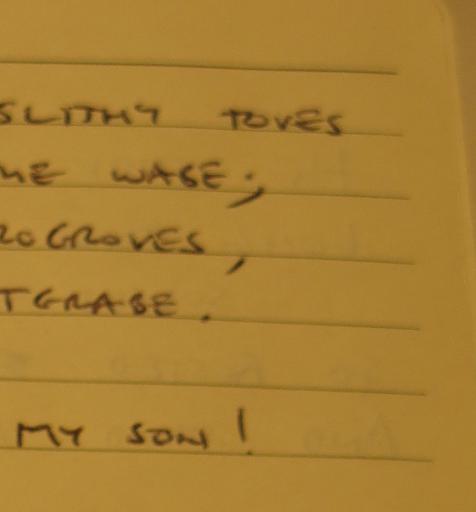 SLITHY TOVES
HE WABE;
ROGROVES,
TGRABE.
MY SON!